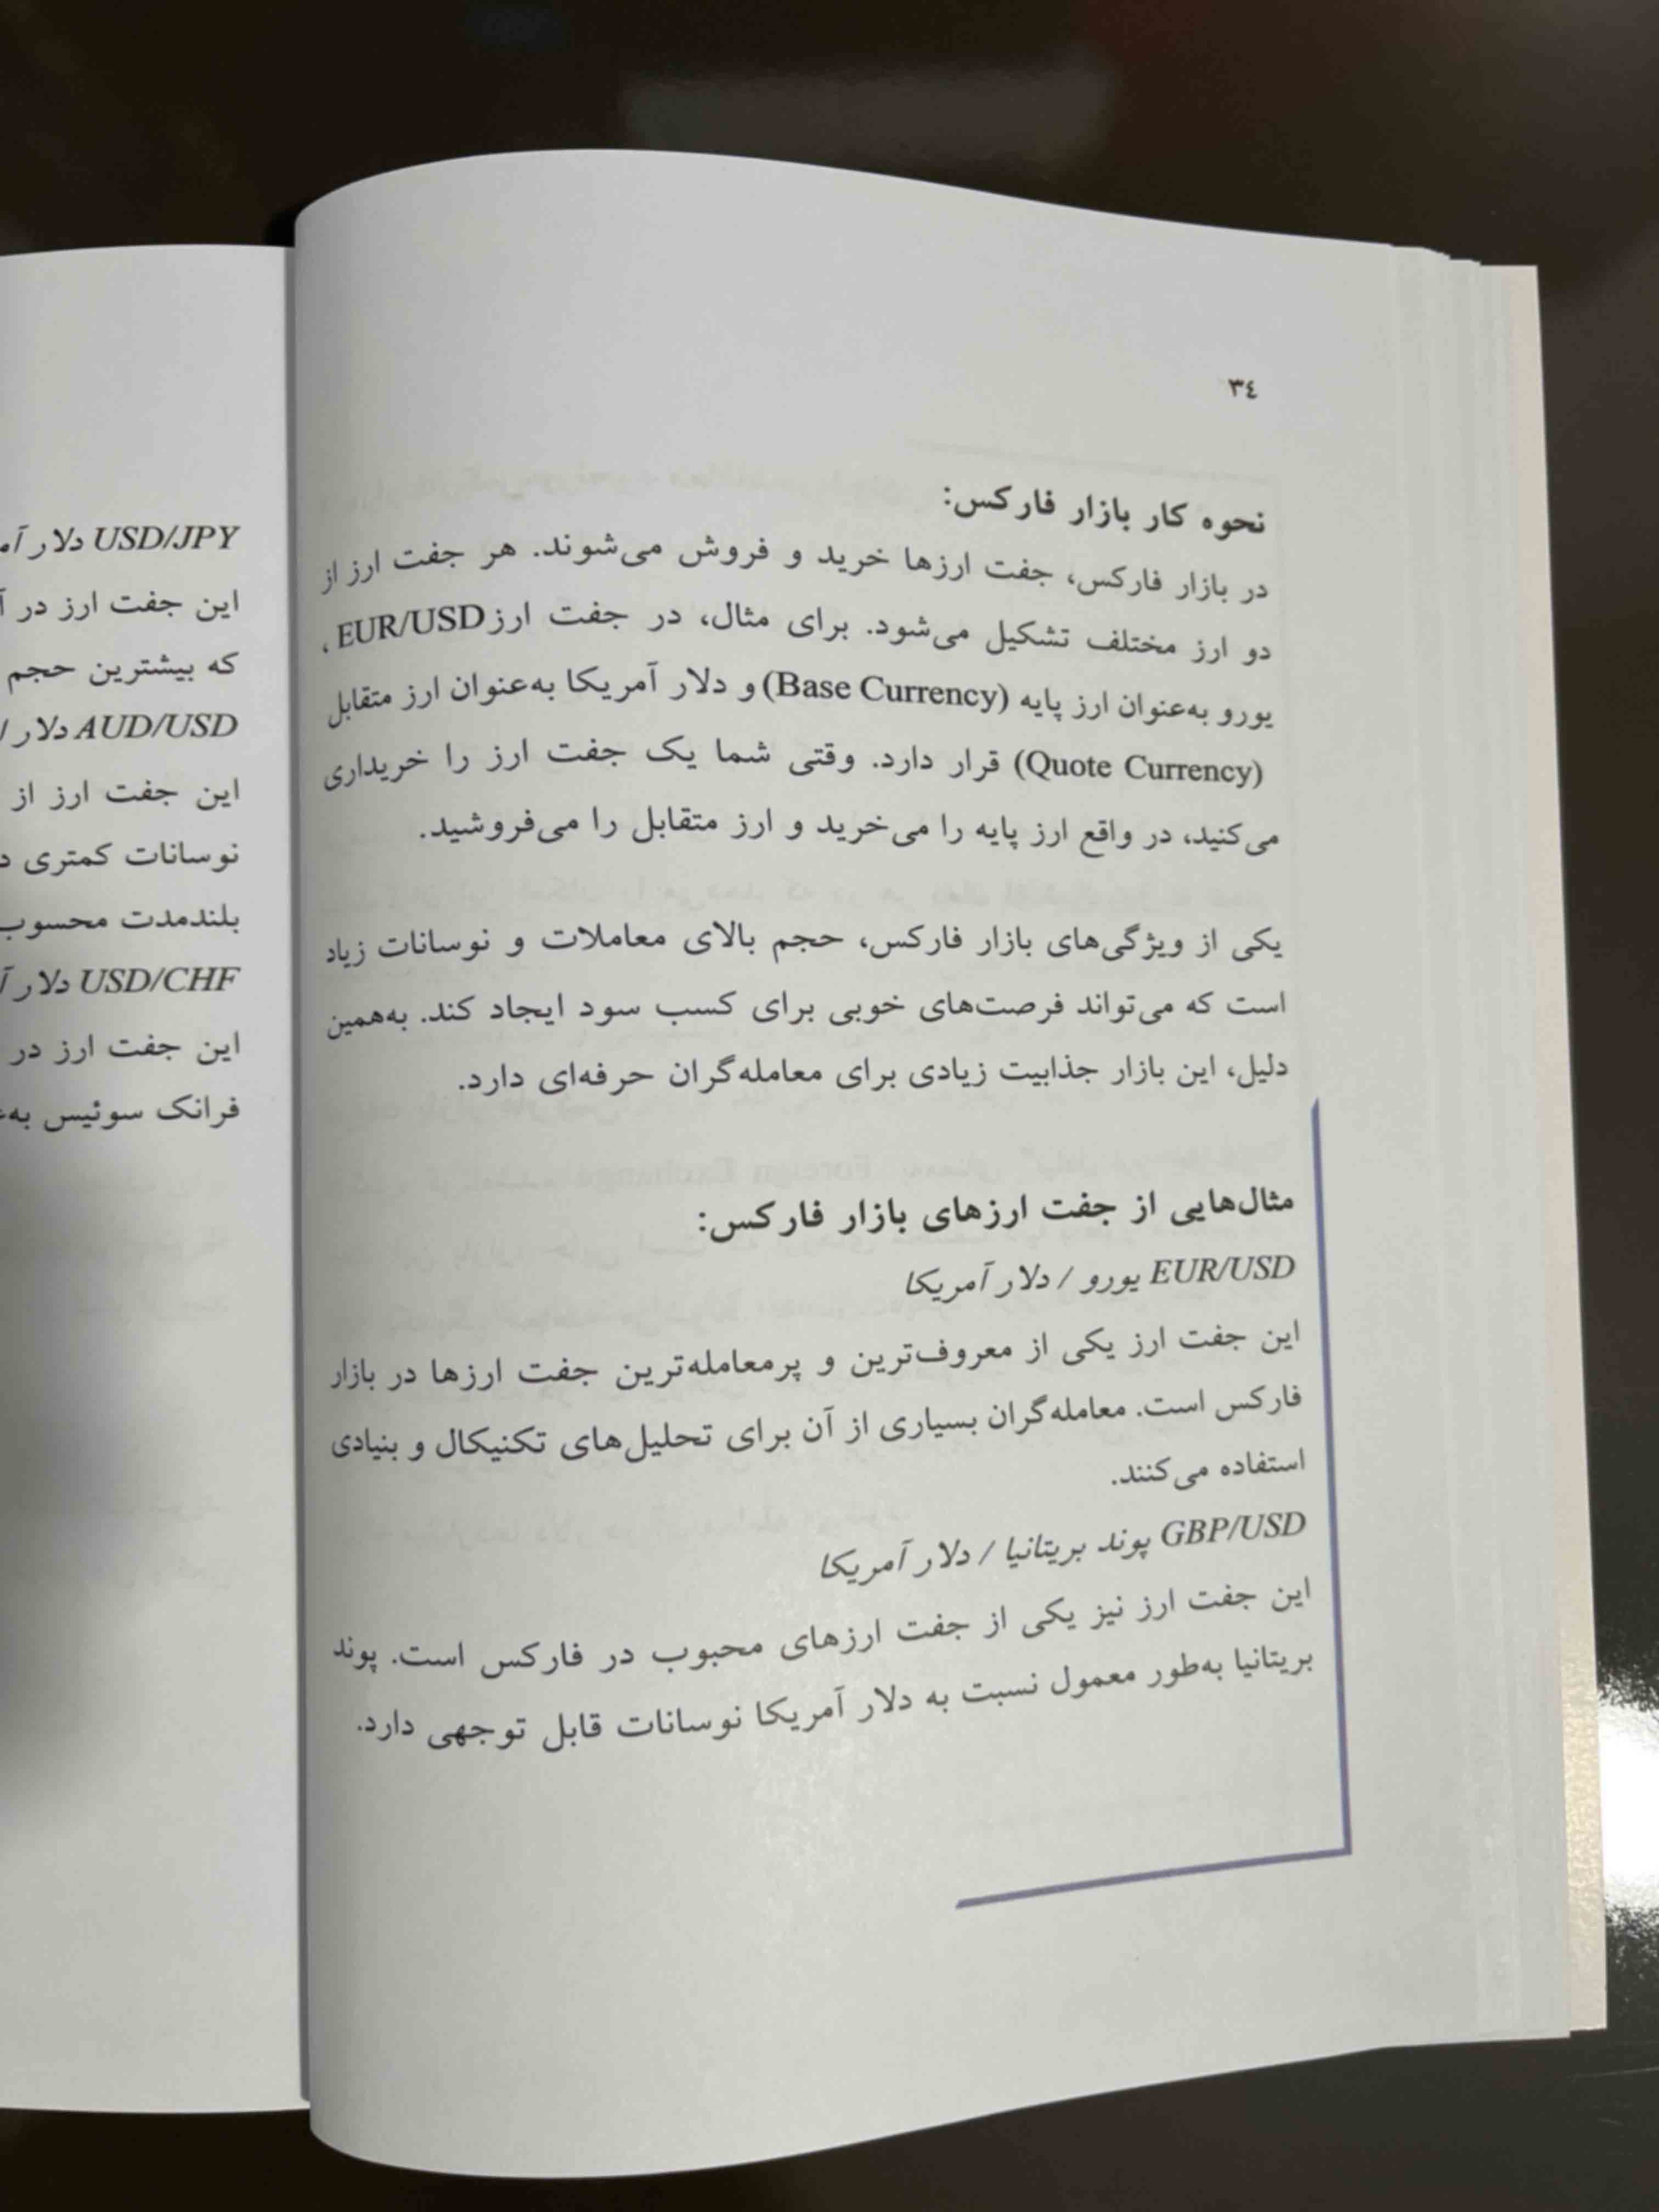 ٣٤
نحوه کار بازار فارکس:
در بازار فارکس، جفت ارزها خرید و فروش می‌شوند. هر جفت ارز از
دو ارز مختلف تشکیل می‌شود. برای مثال، در جفت ارز EUR/USD،
یورو به‌عنوان ارز پایه (Base Currency) و دلار آمریکا به‌عنوان ارز متقابل
(Quote Currency) قرار دارد. وقتی شما یک جفت ارز را خریداری
می‌کنید، در واقع ارز پایه را می‌خرید و ارز متقابل را می‌فروشید.
یکی از ویژگی‌های بازار فارکس، حجم بالای معاملات و نوسانات زیاد
است که می‌تواند فرصت‌های خوبی برای کسب سود ایجاد کند. به‌همین
دلیل، این بازار جذابیت زیادی برای معامله‌گران حرفه‌ای دارد.
مثال‌هایی از جفت ارزهای بازار فارکس:
EUR/USD یورو / دلار آمریکا
این جفت ارز یکی از معروف‌ترین و پرمعامله‌ترین جفت ارزها در بازار
فارکس است. معامله‌گران بسیاری از آن برای تحلیل‌های تکنیکال و بنیادی
استفاده می‌کنند.
GBP/USD پوند بریتانیا / دلار آمریکا
این جفت ارز نیز یکی از جفت ارزهای محبوب در فارکس است. پوند
بریتانیا به‌طور معمول نسبت به دلار آمریکا نوسانات قابل توجهی دارد.
USD/JPY دلار
این جفت ارز در
که بیشترین حجم
AUD/USD دلار
این جفت ارز از
نوسانات کمتری
بلندمدت محسوب
USD/CHF دلار
این جفت ارز در
فرانک سوئیس